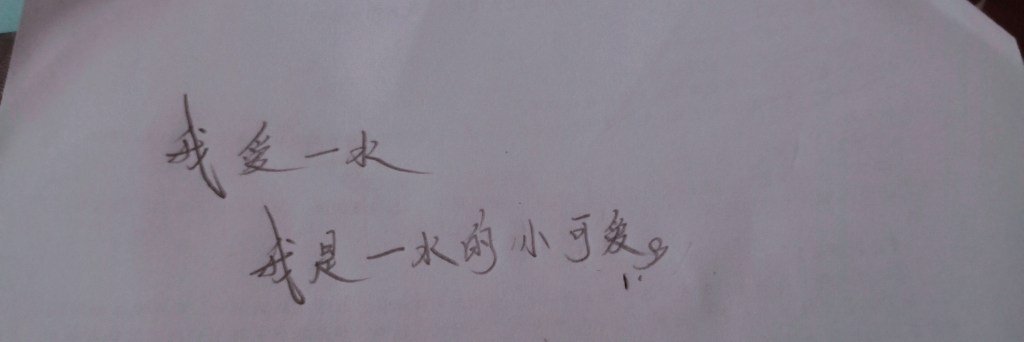 我爱一水
我是一水的小可爱。